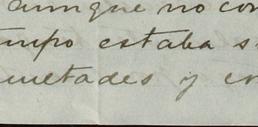 aunque no con
mpo estaba s
ultades y en